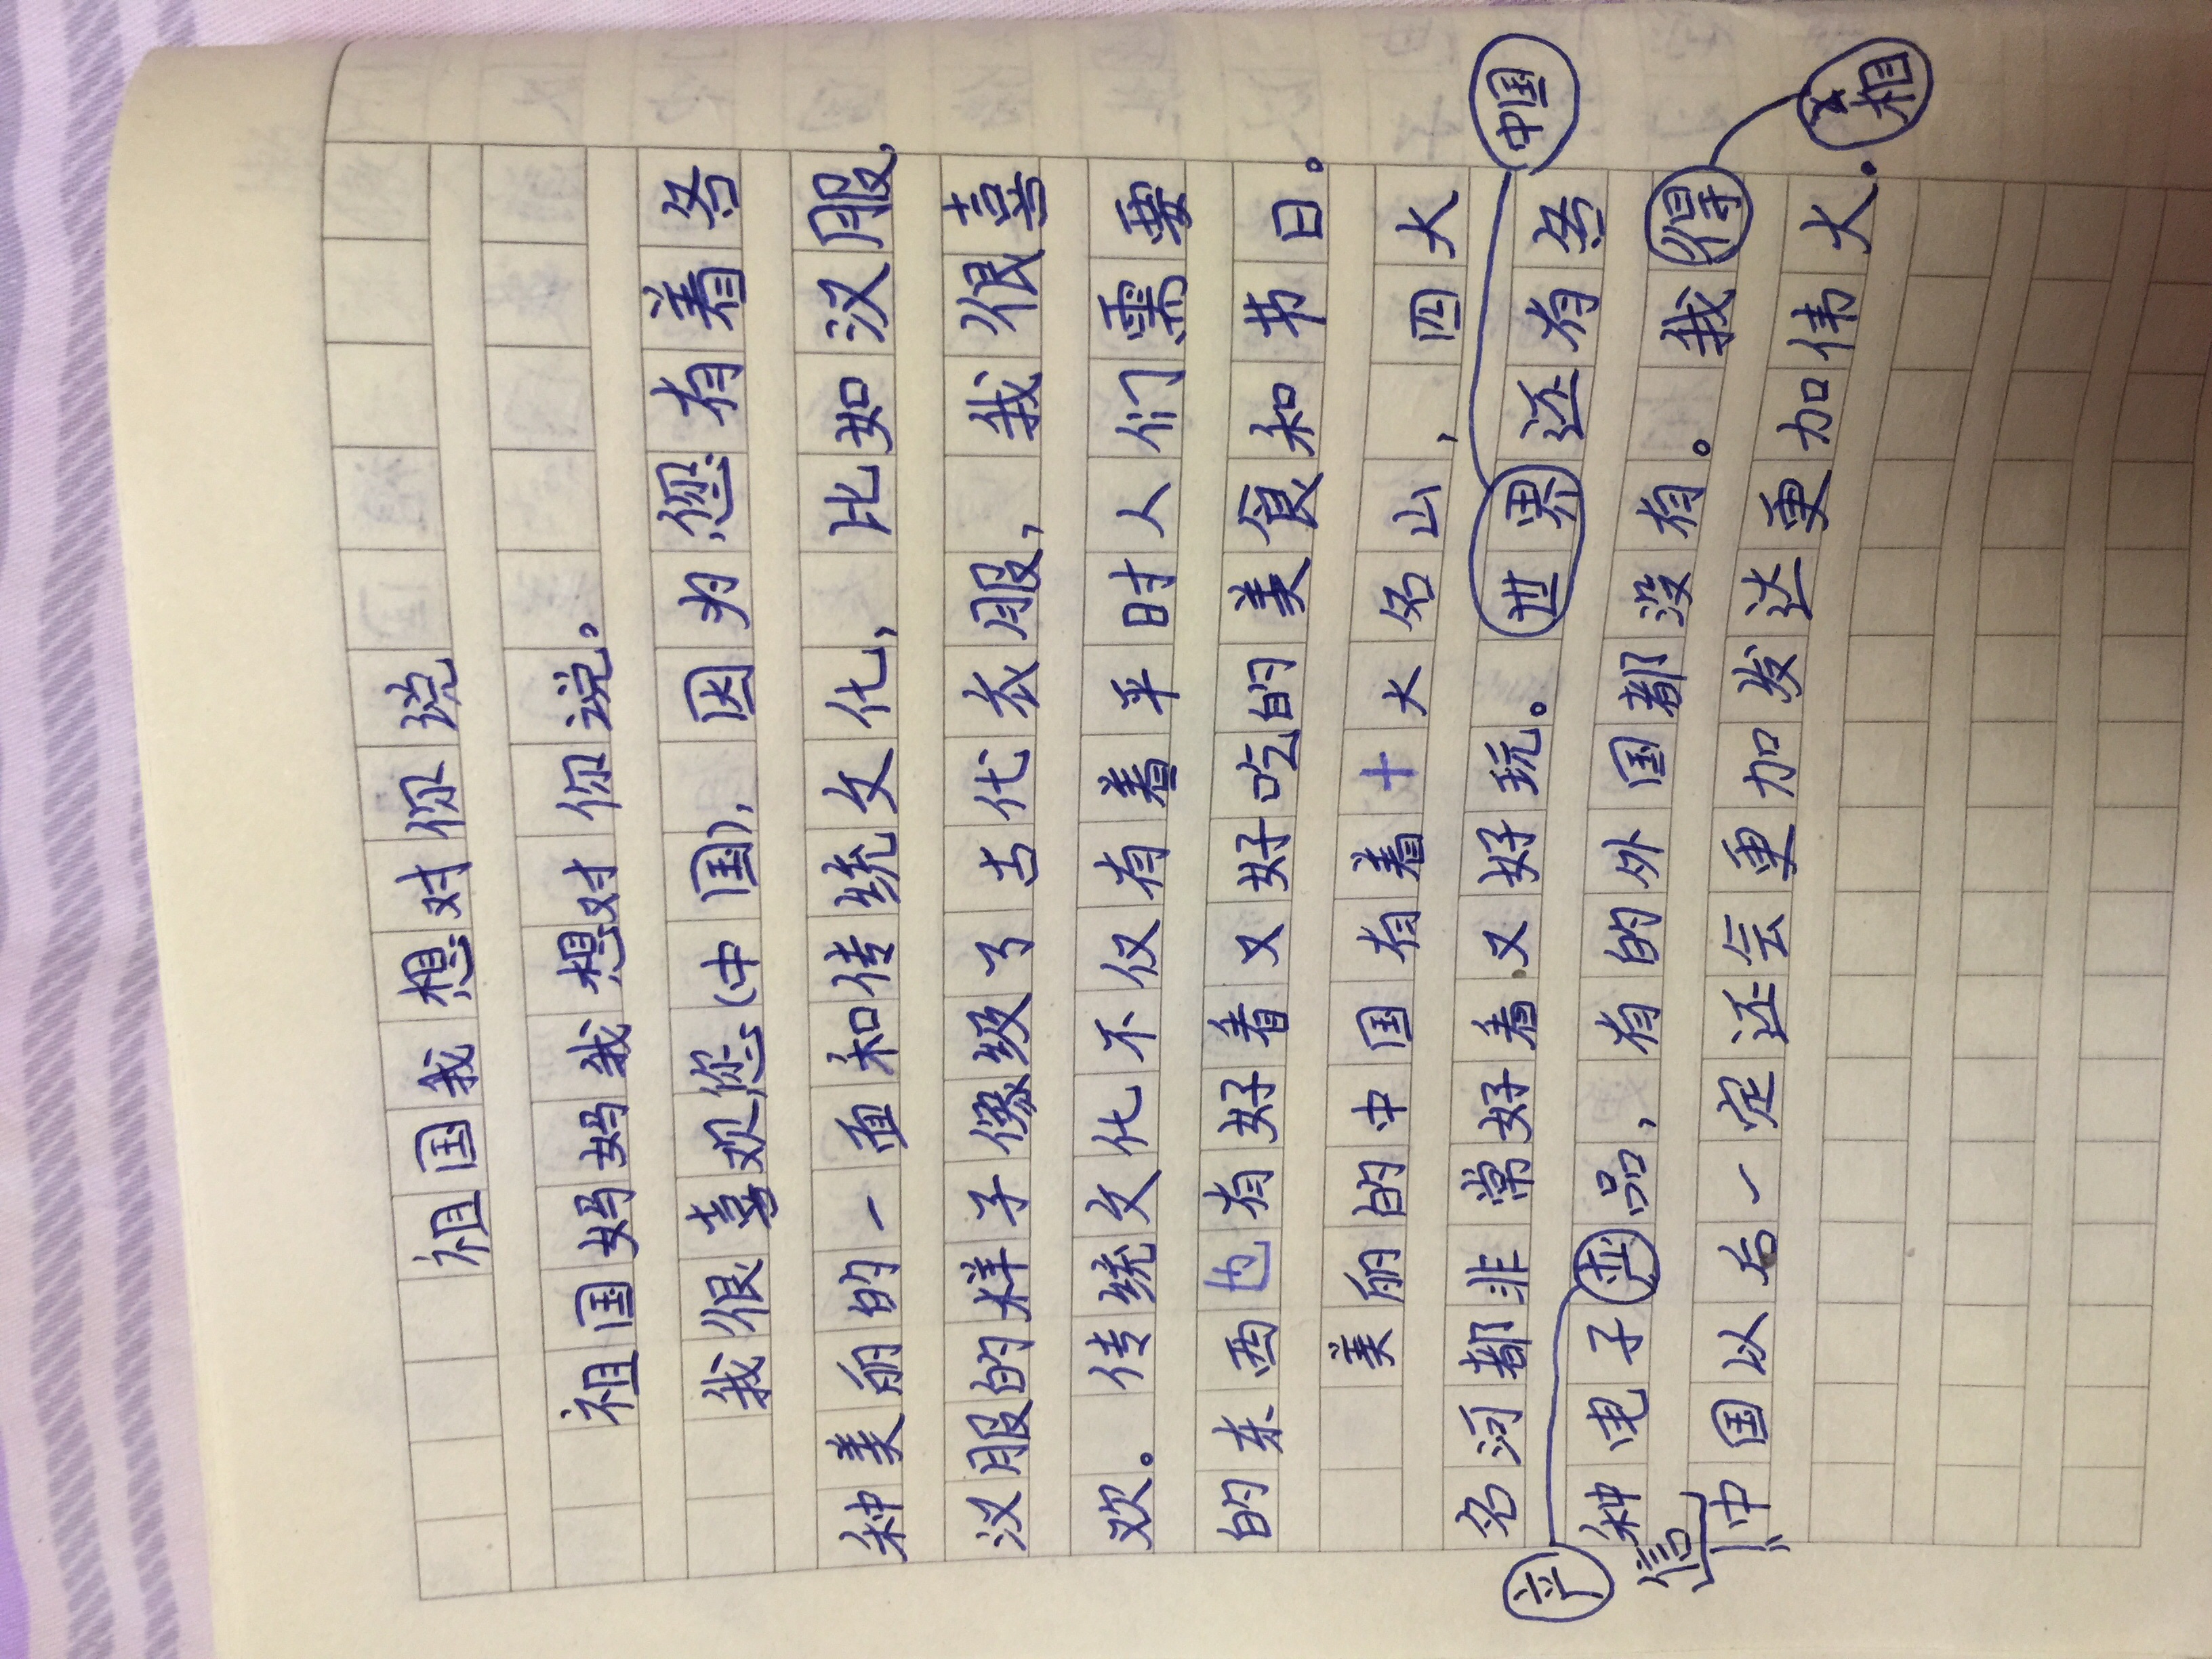 祖国我想对你说
祖国妈妈我想对你说。
我很喜欢您(中国),因为您有着各
种美丽的一面和传统文化,比如汉服,
汉服的样子像极了古代衣服,我很喜
欢。传统文化不仅有着平时人们需要
的东西也有好看又好吃的美食和节日。
美丽的中国有着十大名山,四大
名河都非常好看又好玩。世界还有各
中国
种电子品,有的外国都没有。我得
产
相
信中国以后一定还会更加发达更加伟大.